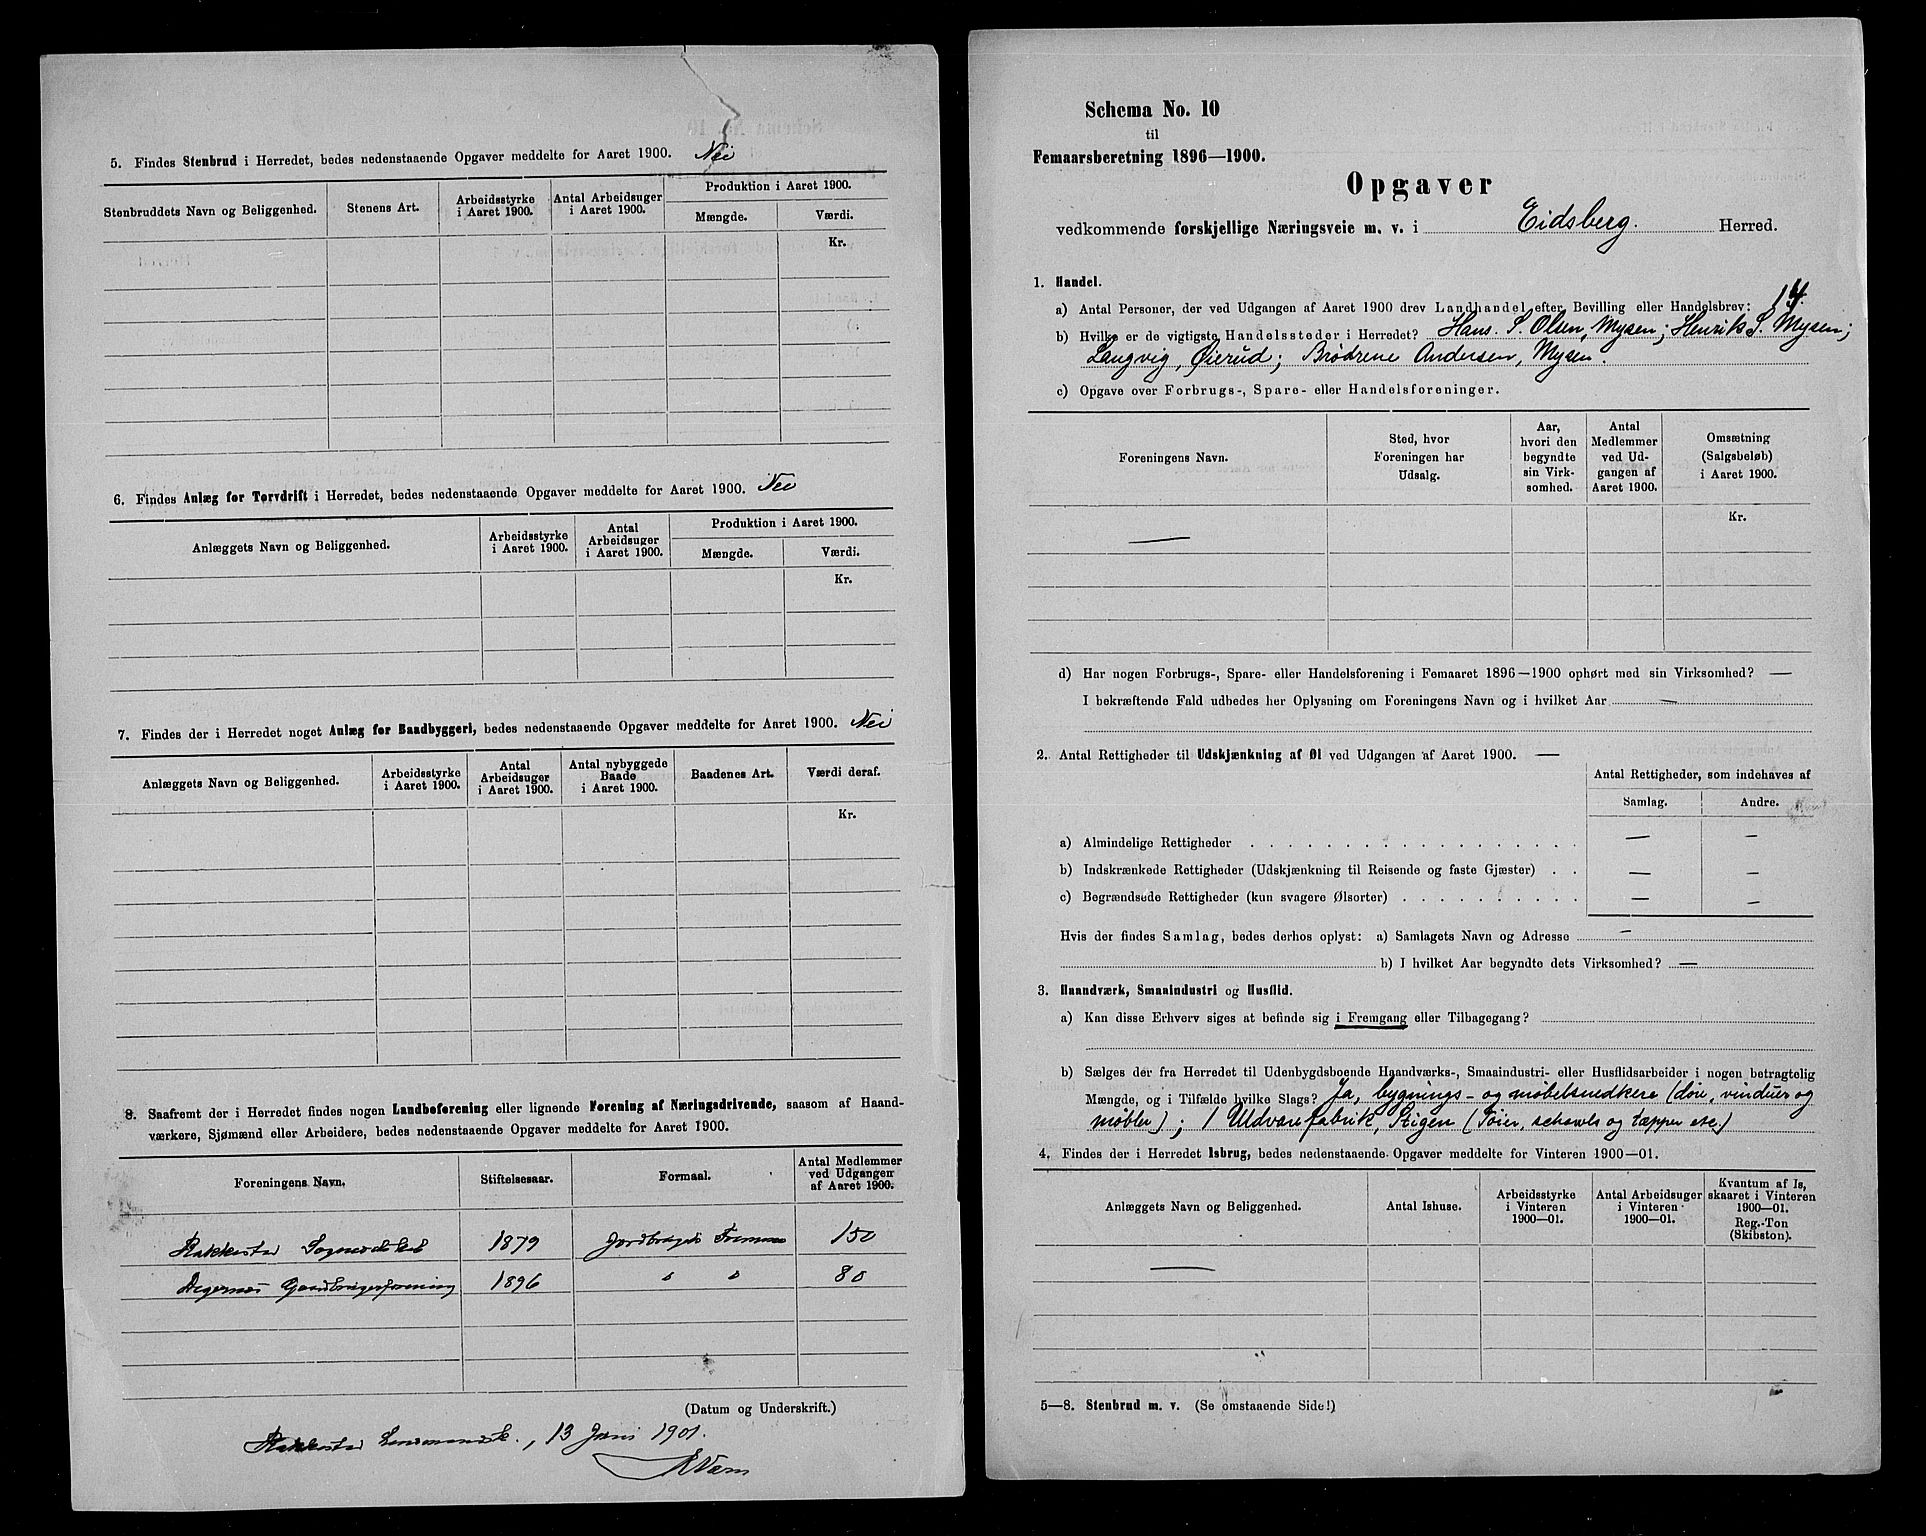 5. Findes Stenbrud i Herredet, bedes nedenstaaende Opgaver meddelte for Aaret 1900. Nei
Stenbruddets Navn og Beliggenhed.
Stenens Art.
Arbeidsstyrke
i Aaret 1900.
Antal Arbeidsuger
i Aaret 1900.
Produktion i Aaret 1900.
Mængde.
Værdi.
Kr.
6. Findes Anlæg for Tørvdrift i Herredet, bedes nedenstaaende Opgaver meddelte for Aaret 1900. Nei
Anlæggets Navn og Beliggenhed.
Arbeidsstyrke
i Aaret 1900.
Antal
Arbeidsuger
i Aaret 1900.
Produktion i Aaret 1900.
Mængde.
Værdi.
Kr.
7. Findes der i Herredet noget Anlæg for Baadbyggeri, bedes nedenstaaende Opgaver meddelte for Aaret 1900. Nei
Anlæggets Navn og Beliggenhed.
Arbeidsstyrke
i Aaret 1900.
Antal
Arbeidsuger
i Aaret 1900.
Antal nybyggede
Baade
i Aaret 1900.
Baadenes Art.
Værdi deraf.
Kr.
8. Saafremt der i Herredet findes nogen Landboforening eller lignende Forening af Næringsdrivende, saasom af Haand-
værkere, Sjømænd eller Arbeidere, bedes nedenstaaende Opgaver meddelte for Aaret 1900.
Foreningens Navn.
Stiftelsesaar.
Formaal.
Antal Medlemmer
ved Udgangen
af Aaret 1900.
Rakkestad Sogneselskab 1879 Jordbrugets Fremme 150
Degernes Gaardbrugerforening 1896 " " 80
(Datum og Underskrift.)
Rakkestad Lensmandsk., 13 Juni 1901.
Schema No. 10
til
Femaarsberetning 1896—1900.
Opgaver
vedkommende forskjellige Næringsveie m. v. i Eidsberg. Herred.
1. Handel.
a) Antal Personer, der ved Udgangen af Aaret 1900 drev Landhandel efter Bevilling eller Handelsbrev: 14.
b) Hvilke er de vigtigste Handelssteder i Herredet? Hans S. Olsen, Mysen; Henrik S. Mysen;
Langvig, Øierud; Brødrene Andersen, Mysen.
c) Opgave over Forbrugs-, Spare- eller Handelsforeninger.
Foreningens Navn.
Sted, hvor
Foreningen har
Udsalg.
Aar,
hvori den
begyndte
sin Virk-
somhed.
Antal
Medlemmer
ved Ud-
gangen af
Aaret 1900.
Omsætning
(Salgsbeløb)
i Aaret 1900.
Kr.
—
d) Har nogen Forbrugs-, Spare- eller Handelsforening i Femaaret 1896—1900 ophørt med sin Virksomhed? —
I bekræftende Fald udbedes her Oplysning om Foreningens Navn og i hvilket Aar —
2. Antal Rettigheder til Udskjænkning af Øl ved Udgangen af Aaret 1900. —
Antal Rettigheder, som indehaves af
Samlag. Andre.
a) Almindelige Rettigheder . . . . . . . . . . . . . . . . . — —
b) Indskrænkede Rettigheder (Udskjænkning til Reisende og faste Gjæster) . . — —
c) Begrændsede Rettigheder (kun svagere Ølsorter) . . . . . . . . . . — —
Hvis der findes Samlag, bedes derhos oplyst: a) Samlagets Navn og Adresse —
b) I hvilket Aar begyndte dets Virksomhed? —
3. Haandværk, Smaaindustri og Husflid.
a) Kan disse Erhverv siges at befinde sig i Fremgang eller Tilbagegang?
b) Sælges der fra Herredet til Udenbygdsboende Haandværks-, Smaaindustri- eller Husflidsarbeider i nogen betragtelig
Mængde, og i Tilfælde hvilke Slags? Ja, bygnings- og møbelsnedkere (døre, vinduer og
møbler); 1 Uldvarefabrik, Stigen (Tøier, schawls og tæpper etc.)
4. Findes der i Herredet Isbrug, bedes nedenstaaende Opgaver meddelte for Vinteren 1900—01.
Anlæggets Navn og Beliggenhed.
Antal Ishuse.
Arbeidsstyrke
i Vinteren
1900—01.
Antal Arbeidsuger
i Vinteren
1900—01.
Kvantum af Is,
skaaret i Vinteren
1900—01.
Reg.-Ton
(Skibston).
—
5—8. Stenbrud m. v. (Se omstaaende Side!)